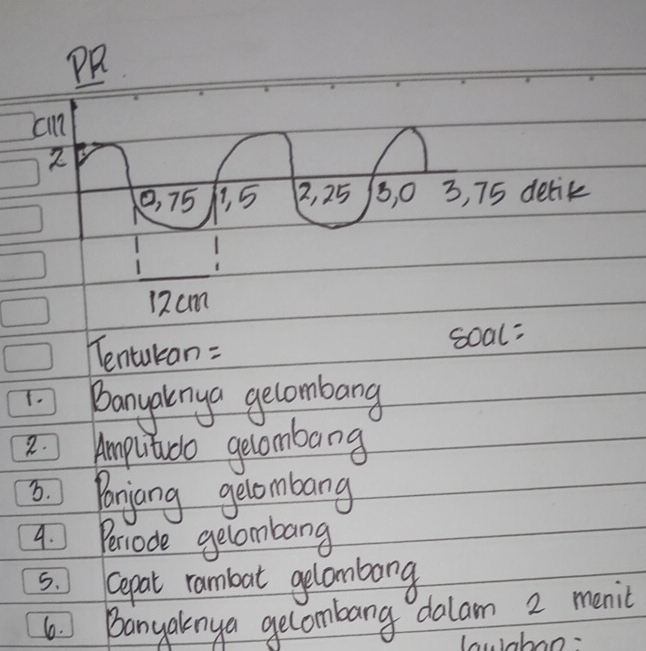 PR
cm
2
0,75 1,5 2,25 3,0 3,75 detik
12 cm
Tentukan = soal =
1. Banyaknya gelombang
2. Amplitudo gelombang
3. Panjang gelombang
4. Periode gelombang
5. Cepat rambat gelombang
6. Banyaknya gelombang dalam 2 menit
Jawaban =